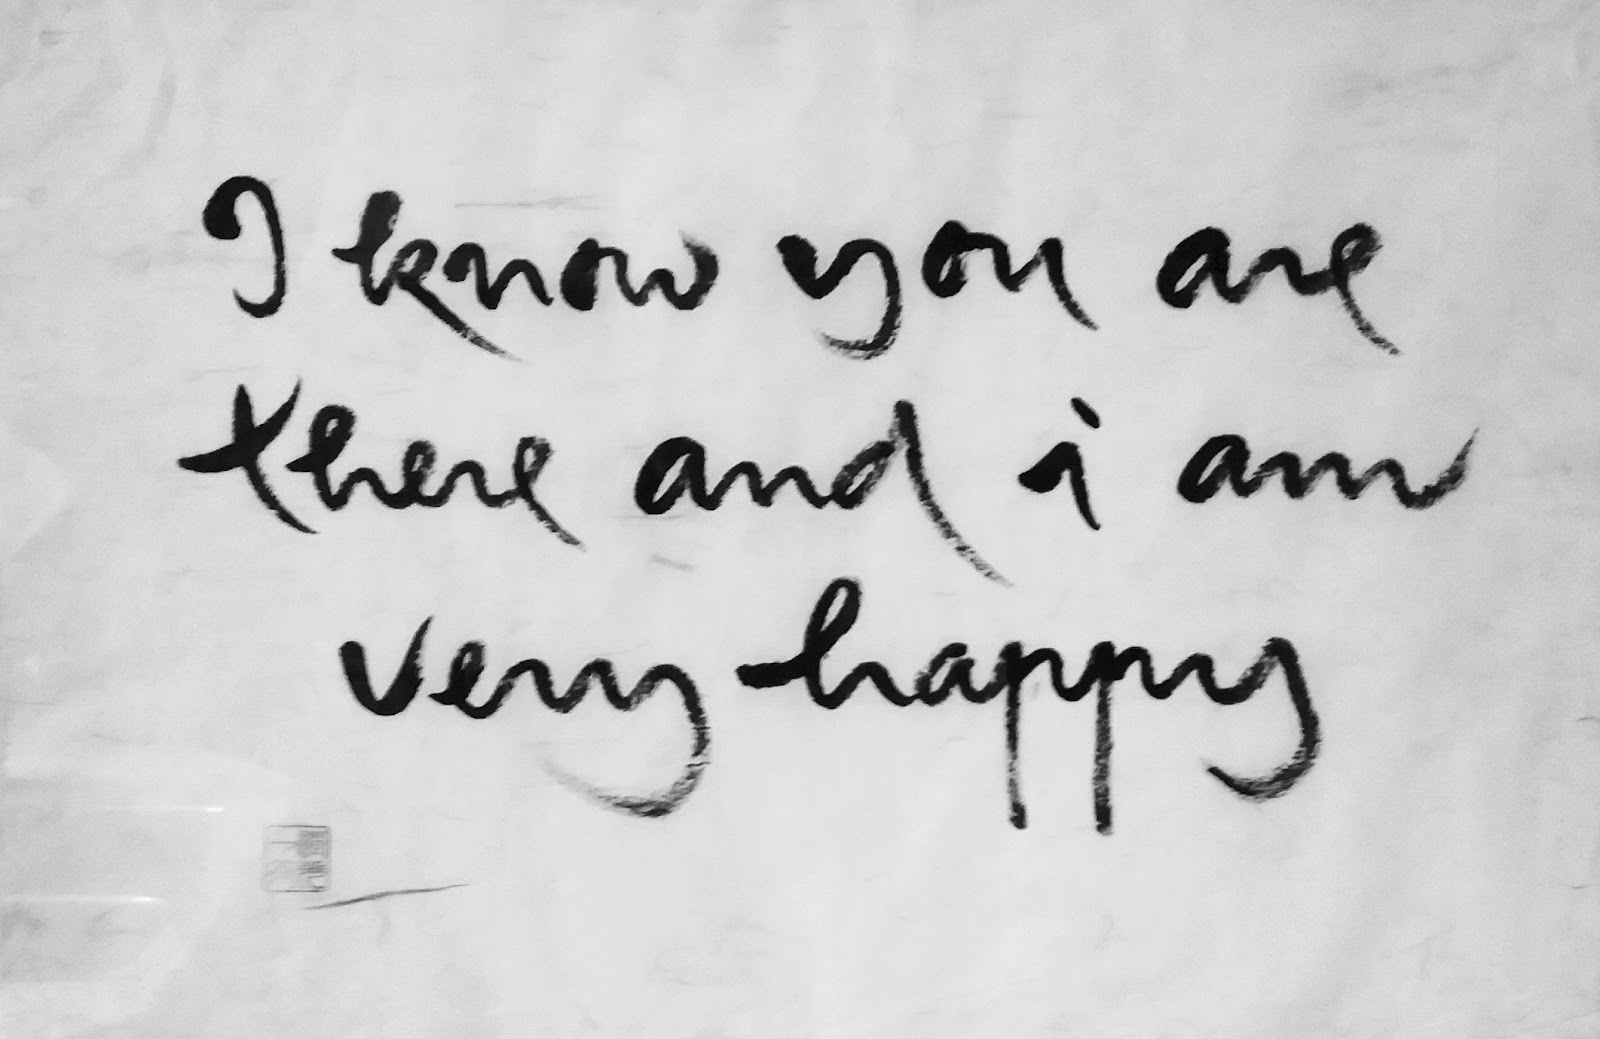 I know you are
there and i am
very happy